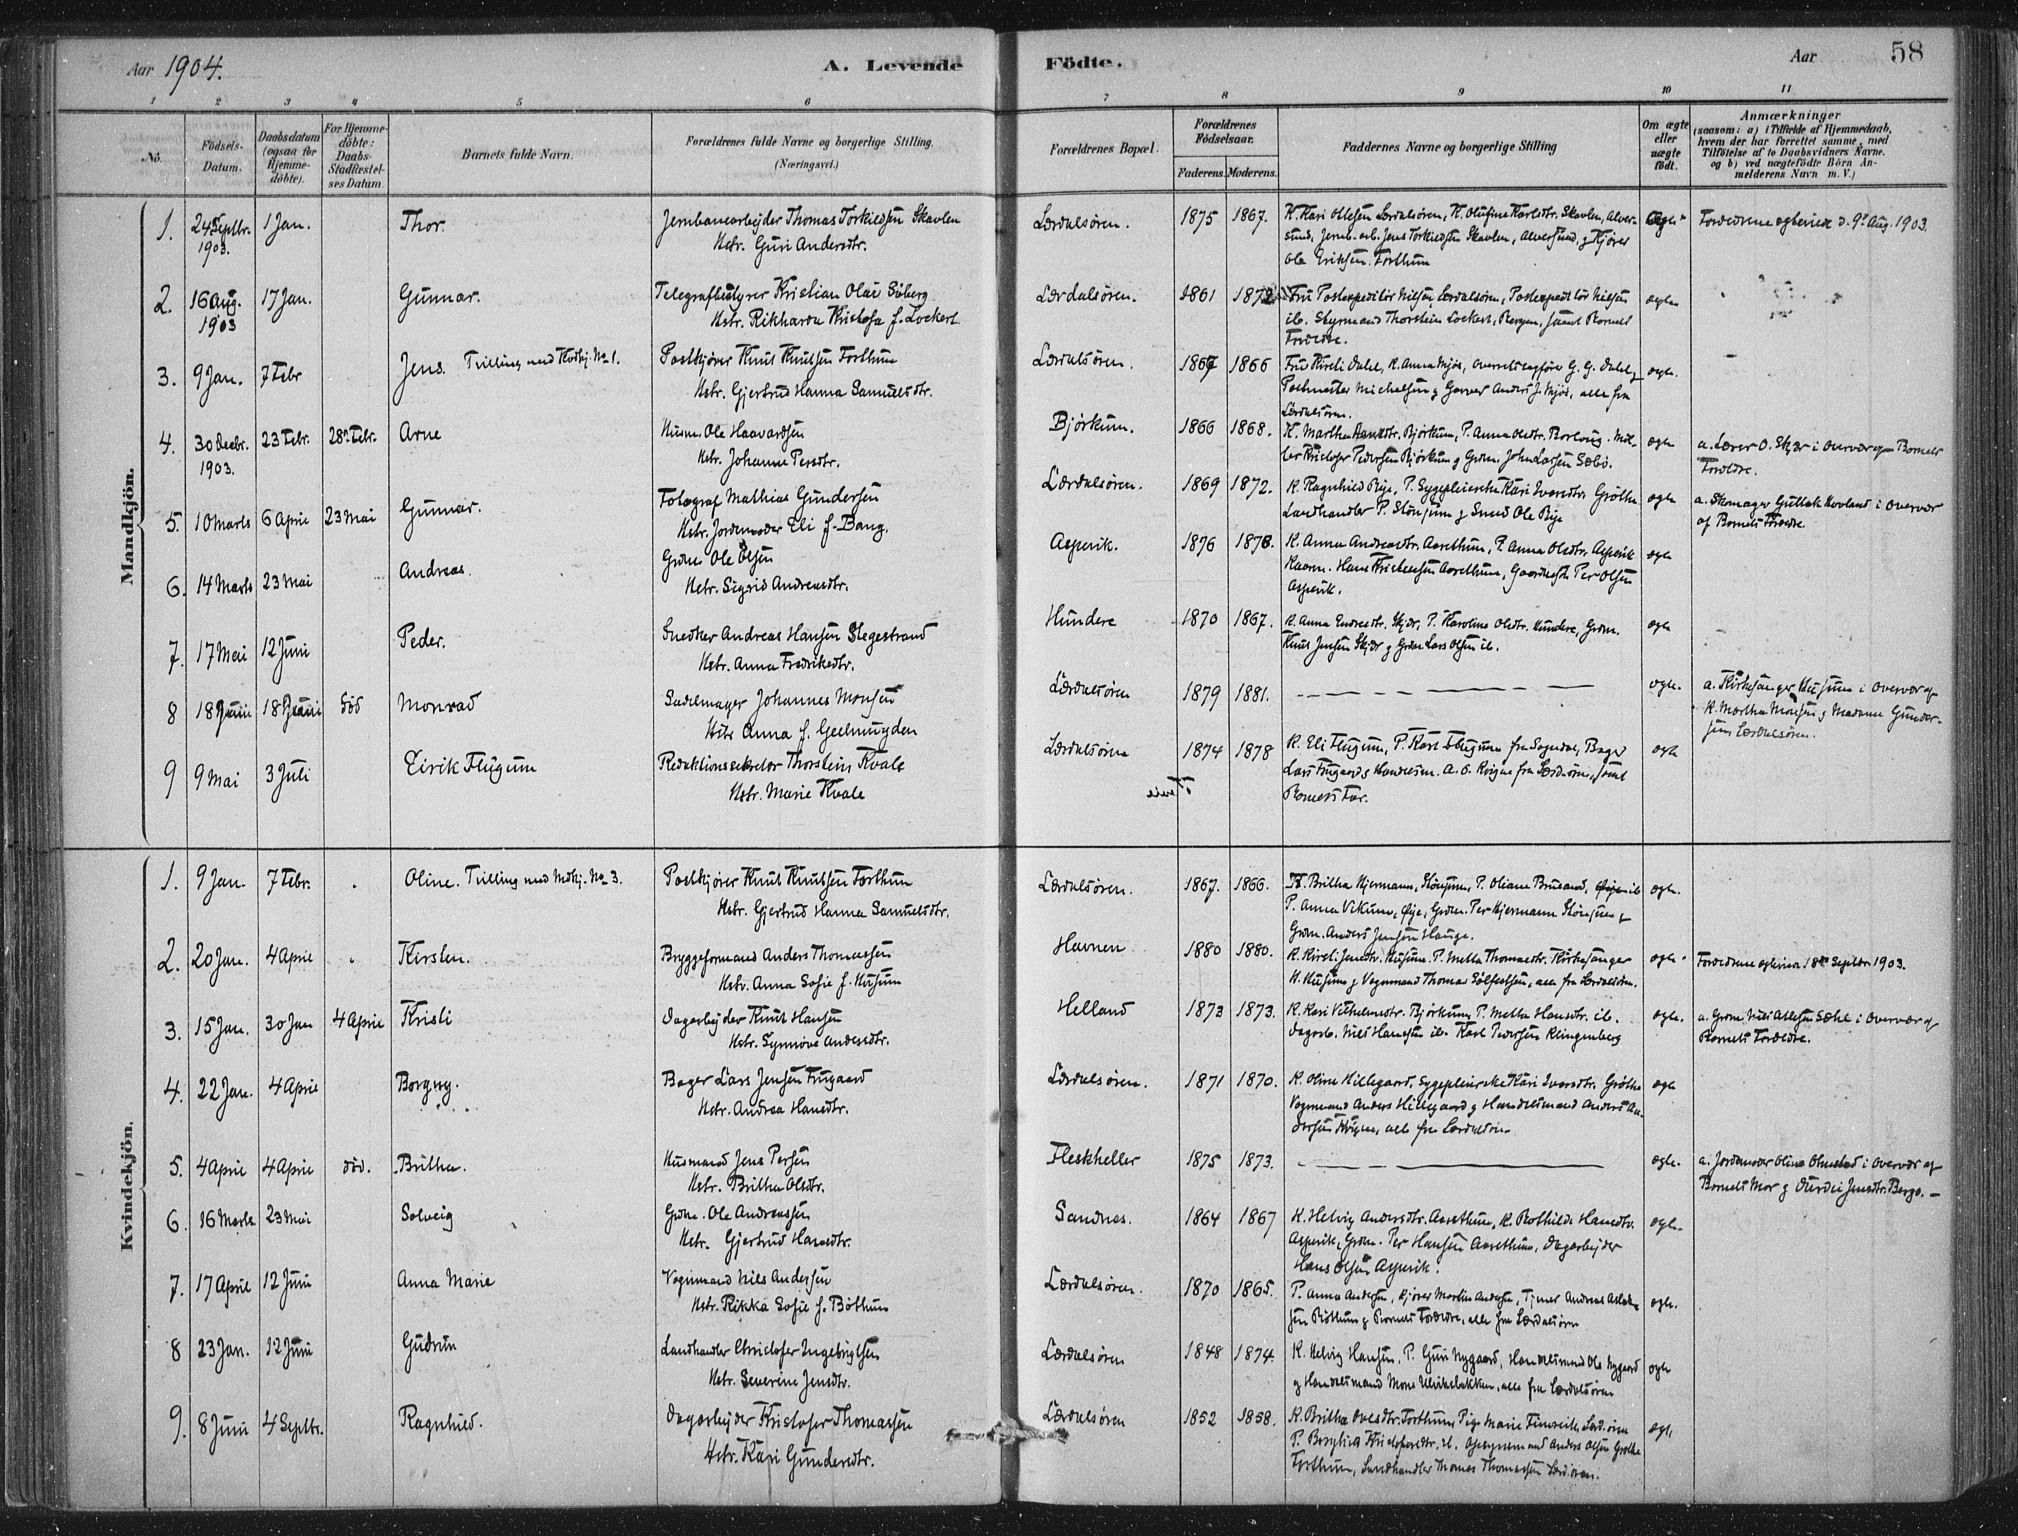 Aar 1904.
A. Levende Födte.
Aar
58
1 2 3 4 5 6 7 8 9 10 11
No.
Födsels-
Datum.
Daabsdatum
(ogsaa for
Hjemme-
döbte).
For Hjemme-
döbte:
Daabs-
Stadfæstel-
ses Datum
Barnets fulde Navn.
Forældrenes fulde Navne og borgerlige Stilling.
(Næringsvei.)
Forældrenes Bopæl.
Forældrenes
Födselsaar.
Faderens. Moderens.
Faddernes Navne og borgerlige Stilling
Om ægte
eller
uægte
födt.
Anmærkninger
(saasom: a) i Tilfælde af Hjemmedaab,
hvem der har forrettet samme, med
Tilföielse af to Daabsvidners Navne.
og b) ved uægtefödte Börn An-
melderens Navn m. V.)
Mandkjön.
1. 24 Septbr. 1 Jan. Thor. Jernbanearbejder Thomas Torkildsen Skavlen Lærdalsören. 1875 1867. K. Kari Ollesen Lærdalsören, K. Olufine Karlsdtr. Skavlen, Alver- Ægte Forældrene egteviet d. 9de Aug. 1903.
1903. Hstr. Guri Andersdtr. sund, Jernb. arb. Jens Torkildsen Skavlen, Alversund, g Kjører
Ole Eriksen Forthun
2. 16 Aug. 17 Jan. Gunnar. Telegrafbestyrer Kristian Olai Söberg Lærdalsören. 1861 1872 Fru Postexpeditör Nilsen Lærdalsören, Postexpeditör Nilsen ægte
1903 Hstr. Rikharda Kristofa f. Lockert ib. Styrmand Thorstein Lockert, Bergen, samt Barnets
Forældre.
3. 9 Jan. 7 Febr Jens. Trilling med Kvdkj. No 1. Postkjører Knut Knutsen Forthun Lærdalsören. 1867 1866 Fru Kirsti Dahl, K. Anna Mjøs, Overretssagfører G. G. Dahl g ægte.
Hstr. Gjertrud Hanna Samuelsdtr. Postmester Michelsen g Garver Anders J. Mjøs, alle fra
Lærdalsören.
4. 30 Decbr. 23 Febr. 28de Febr. Arne Husm. Ole Haavardsen Bjørkum. 1866 1868. K. Martha Bjørkum, P. Anna Olsdtr. ægte a. Lærer O. Skjær i Overvær af Barnets
1903. Hstr. Johanne Persdtr. Kristofer Pedersen Bjørkum g Grdm. John Larsen Sæbö. Forældre.
5. 10 Marts 6 April 23 Mai Gunnar. Fotograf Mathias Gundersen Lærdalsören. 1869 1872. K. Ragnhild Rye, P. Sygepleierske Kari Iversdtr. Gröthe ægte a. Skomager Gutlak Hovland i Overvær
Hstr. Jordemoder Eli f. Bang. Landhandler P. Stönjum g Smed Ole Rye af Barnets Forældre.
6. 14 Marts 23 Mai Andreas. Grdm. Ole Olsen Asperik. 1876 1878. K. Anna Andreasdtr. Aarethun, P. Anna Olsdtr. Asperik ægte
Hstr. Sigrid Andreasdtr. Kaarm. Hans Aarethun, Per Olsen
Asperik.
7. 17 Mai 12 Juni Peder. Snedker Andreas Hansen Stegestrand Hundere 1870 1867. K. Anna Endresdtr. Skjær, P. Karoline Olsdtr. Hundere, Grdm. ægte
Hstr. Anna Fredriksdtr. Knut Jensen Skjær g Grdm Lars Olsen ib.
8 18 Juni 18 Juni död Monrad Sadelmager Johannes Monsen Lærdalsören 1879 1881. ægte. a. Kirkesanger Husum i Overvær af
Hstr Anna f. Geelmuyden K. Martha Monsen g Madame Gunder-
sen Lærdalsören.
9 9 Mai 3 Juli Eirik Flugum Redaktionssekretær Thorstein Kvale Lærdalsören 1874 1878 K. Eli Flugum, P. Kari Flugum fra Sogndal, Bager ægte
Hstr. Marie Kvale Lars Frugaard g Handelsm. A. O. fra Lærdören, samt
Barnets Far.
Kvindekjön.
1. 9 Jan. 7 Febr. Oline. Trilling med Mdkj. No 3. Postkjører Knut Knutsen Forthun Lærdalsören. 1867. 1866. K. Britha Hjermann, Stönjum, P. Oliane Bruland, Øye ib ægte.
Hstr. Gjertrud Hanna Samuelsdtr. P. Anna Vikum, Øye, Grdm. Per Hjermann Stönjum g
Grdm. Anders Jensen Hauge.
2. 20 Jan. 4 April Kirsten. Bryggeformand Anders Thomassen Havnen 1880 1880. K. Kirsti Jensdtr. Husum. P. Metha Thomasdtr. Kirkesanger ægte Forældrene egteviet 18de Septbr 1903.
Hstr. Anna Sofie f. Husum H. Husum g Vognmand Thomas Sölfestsen, alle fra Lærdalsören.
3. 15 Jan. 30 Jan 4 April Kristi Dagarbejder Knut Hansen Helland 1873 1873. K. Kari Vilhelmsdtr. Bjørkum, P. Metha Hansdtr. ib. ægte. a. Grdm. Nils Sæhl i Overvær af
Hstr. Synnöve Andersdtr. Dagarb. Nils Hansen ib. Karl Pedersen Klingenberg Barnets Forældre.
4. 22 Jan. 4 April Borgny. Bager Lars Jensen Frugaard Lærdalsören. 1871 1870. K. Oline Hillegaard, Sygepleierske Kari Iversdtr. Gröthe ægte
Hstr. Andrea Hansdtr. Vognmand Anders Hillegaard g Handelsmand Anders An-
dersen alle fra Lærdalsören
5. 4 April 4 April död. Britha. Husmand Jens Persen Fleskheller 1875 1873. ægte. a. Jordemoder Olina Olmstad i Overvær af
Hstr. Britha Olsdtr. Barnets Mor g Jensdtr. Berge.
6. 16 Marts 23 Mai Solveig Grdm. Ole Andreassen Sandnes. 1864 1867 K. Helvig Andersdtr. Aarethun, K. Bothilde Hansdtr. ægte.
Hstr. Gjertrud Hansdtr. Asperik, Grdm. Per Hansen Aarethun, Dagarbejder
Hans Olsen Asperik.
7. 17 April 12 Juni Anna Marie Vognmand Nils Andersen Lærdalsören. 1870 1865. P. Anna Andersen, Kjører Martin Andersen, Tjener Andreas ægte.
Hstr. Rikka Sofie f. Böthun sen Böthun g Barnets Forældre, alle fra Lærdalsören
8 23 Jan. 12 Juni Gudrun Landhandler Christofer Ingebrigtsen Lærdalsören 1848 1874. K. Helvig Hansen, P. Guri Nygaard, Handelsmand Ole Nygaard ægte
Hstr. Severine Jensdtr. g Handelsmand Mons Ulriksbakken, alle fra Lærdalsören
9. 8 Juni 4 Septbr. Ragnhild. Dagarbejder Kristofer Thomassen Lærdalsören 1852 1858. K. Britha Forthun, Pige Marie Lærdören ægte
Hstr. Kari Gundersdtr. P. Kristofersdtr. ib. Anders Olsen Gröthe
Forthun, Landhandler Thomas Thomassen Lærdören.